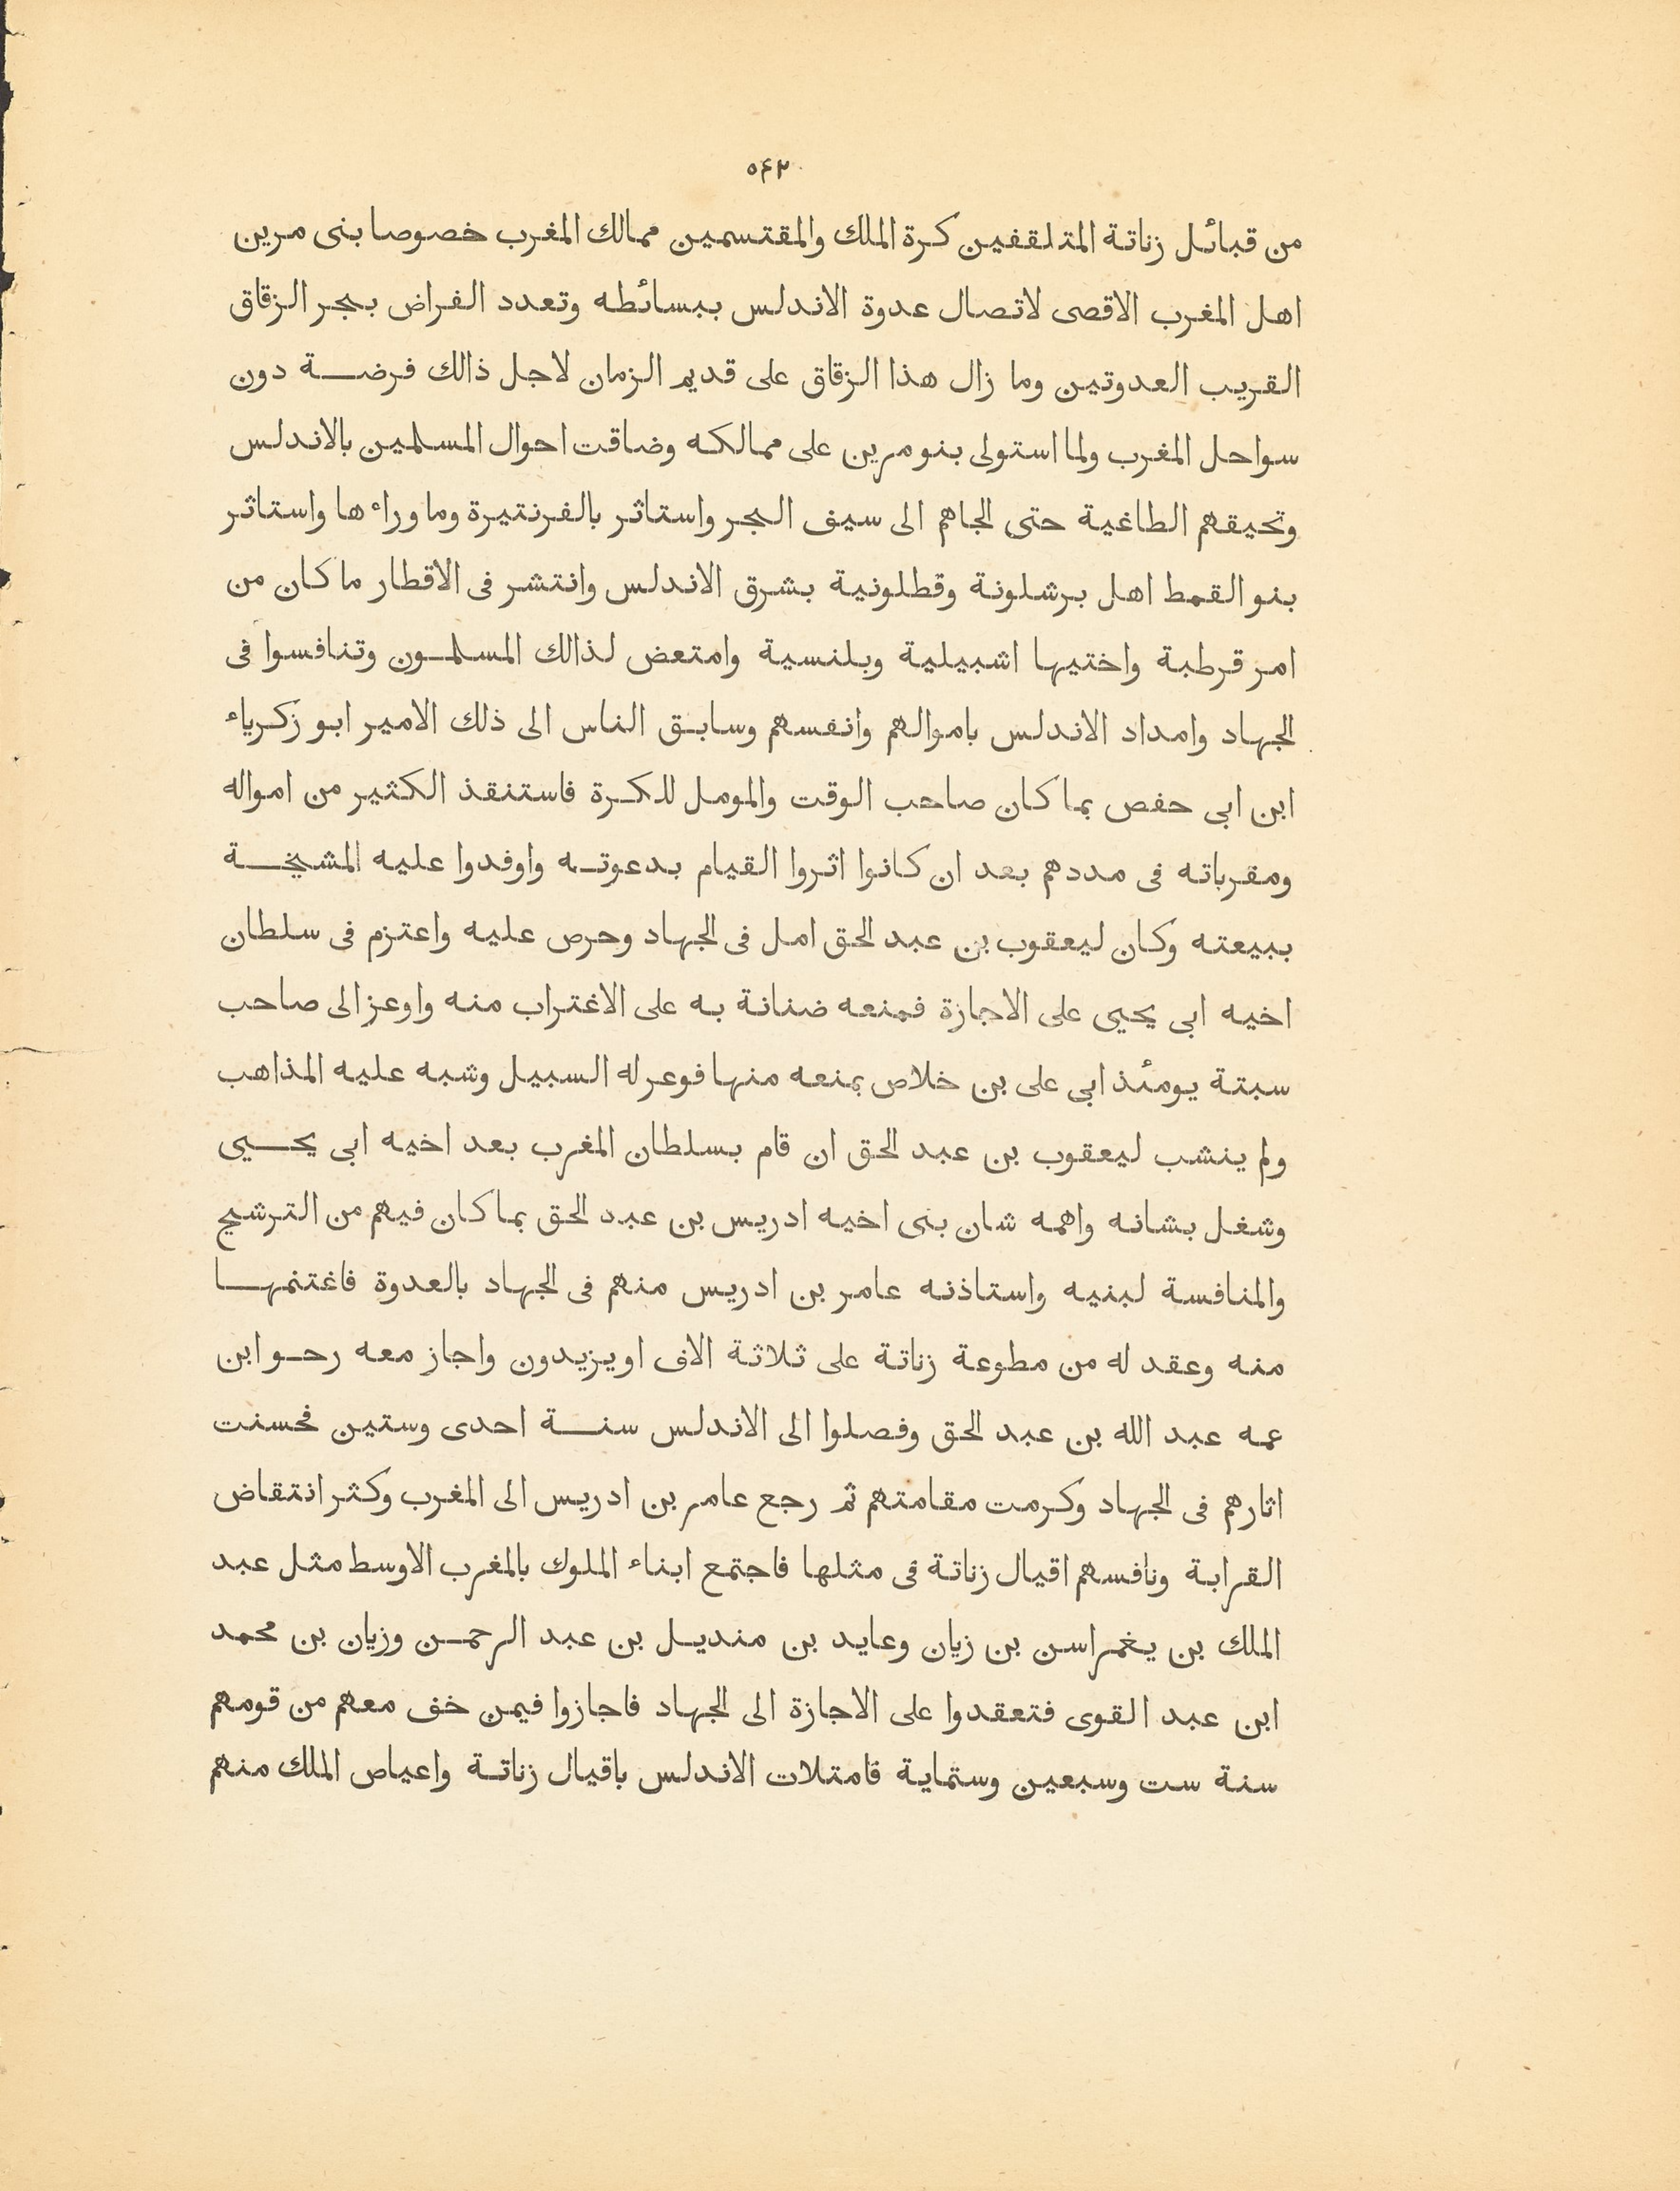 ٥٤٢
من قبائل زناتة المتلقفين كرة الملك والمقتسمين ممالك المغرب خصوصا بنى مرين
اهل المغرب الاقصى لاتصال عدوة الاندلس ببسائطه وتعدد الفراض ببحر الزقاق
القريب العدوتين وما زال هذا الزقاق على قديم الزمان لاجل ذالك فرضة دون
سواحل المغرب ولما استولى بنو مرين على ممالكه وضاقت احوال المسلمين بالاندلس
وتحيقهم الطاغية حتى الجاهم الى سيف البحر واستاثر بالفرنتيرة وما وراء ها واستاثر
بنو القمط اهل برشلونة وقطلونية بشرق الاندلس وانتشر فى الاقطار ما كان من
امر قرطبة واختيها اشبيلية وبلنسية وامتعض لذالك المسلمون وتنافسوا فى
الجهاد وامداد الاندلس باموالهم وانفسهم وسابق الناس الى ذلك الامير ابو زكرياء
ابن ابى حفص بما كان صاحب الوقت والمومل للكرة فاستنقذ الكثير من امواله
ومقرباته فى مددهم بعد ان كانوا اثروا القيام بدعوته واوفدوا عليه المشيخة
ببيعته وكان ليعقوب بن عبد الحق امل فى الجهاد وحرص عليه واعتزم فى سلطان
اخيه ابى يحيى على الاجازة فمنعه ضنانة به على الاغتراب منه واوعز الى صاحب
سبتة يومئذ ابى على بن خلاص بمنعه منها فوعر له السبيل وشبه عليه المذاهب
ولم ينشب ليعقوب بن عبد الحق ان قام بسلطان المغرب بعد اخيه ابى يحيى
وشغل بشانه واهمه شان بنى اخيه ادريس بن عبد الحق بما كان فيهم من الترشيح
والمنافسة لبنيه واستاذنه عامر بن ادريس منهم فى الجهاد بالعدوة فاغتنمها
منه وعقد له من مطوعة زناتة على ثلاثة الاف او يزيدون واجاز معه رحو ابن
عمه عبد الله بن عبد الحق وفصلوا الى الاندلس سنة احدى وستين فحسنت
اثارهم فى الجهاد وكرمت مقامتهم ثم رجع عامر بن ادريس الى المغرب وكثر انتقاض
القرابة ونافسهم اقيال زناتة فى مثلها فاجتمع ابناء الملوك بالمغرب الاوسط مثل عبد
الملك بن يغمراسن بن زيان وعايد بن منديل بن عبد الرحمن وزيان بن محمد
ابن عبد القوى فتعقدوا على الاجازة الى الجهاد فاجازوا فيمن خف معهم من قومهم
سنة ست وسبعين وستماية قامتلات الاندلس باقيال زناتة واعياص الملك منهم